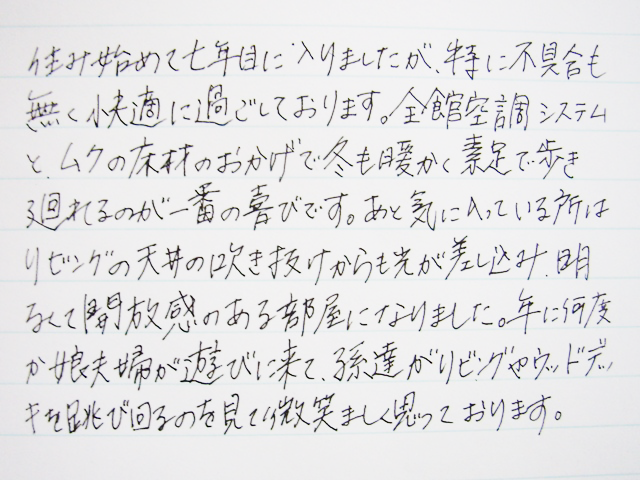 住み始めて七年目に入りましたが、特に不具合も
無く快適に過ごしております。全館空調システム
と、ムクの床材のおかげで冬も暖かく素足で歩き
廻れるのが一番の喜びです。あと気に入っている所は
リビングの天井の吹き抜けからも光が差し込み、明
るくて開放感のある部屋になりました。年に何度
か娘夫婦が遊びに来て、孫達がリビングやウッドデッ
キを跳び回るのを見て微笑ましく思っております。